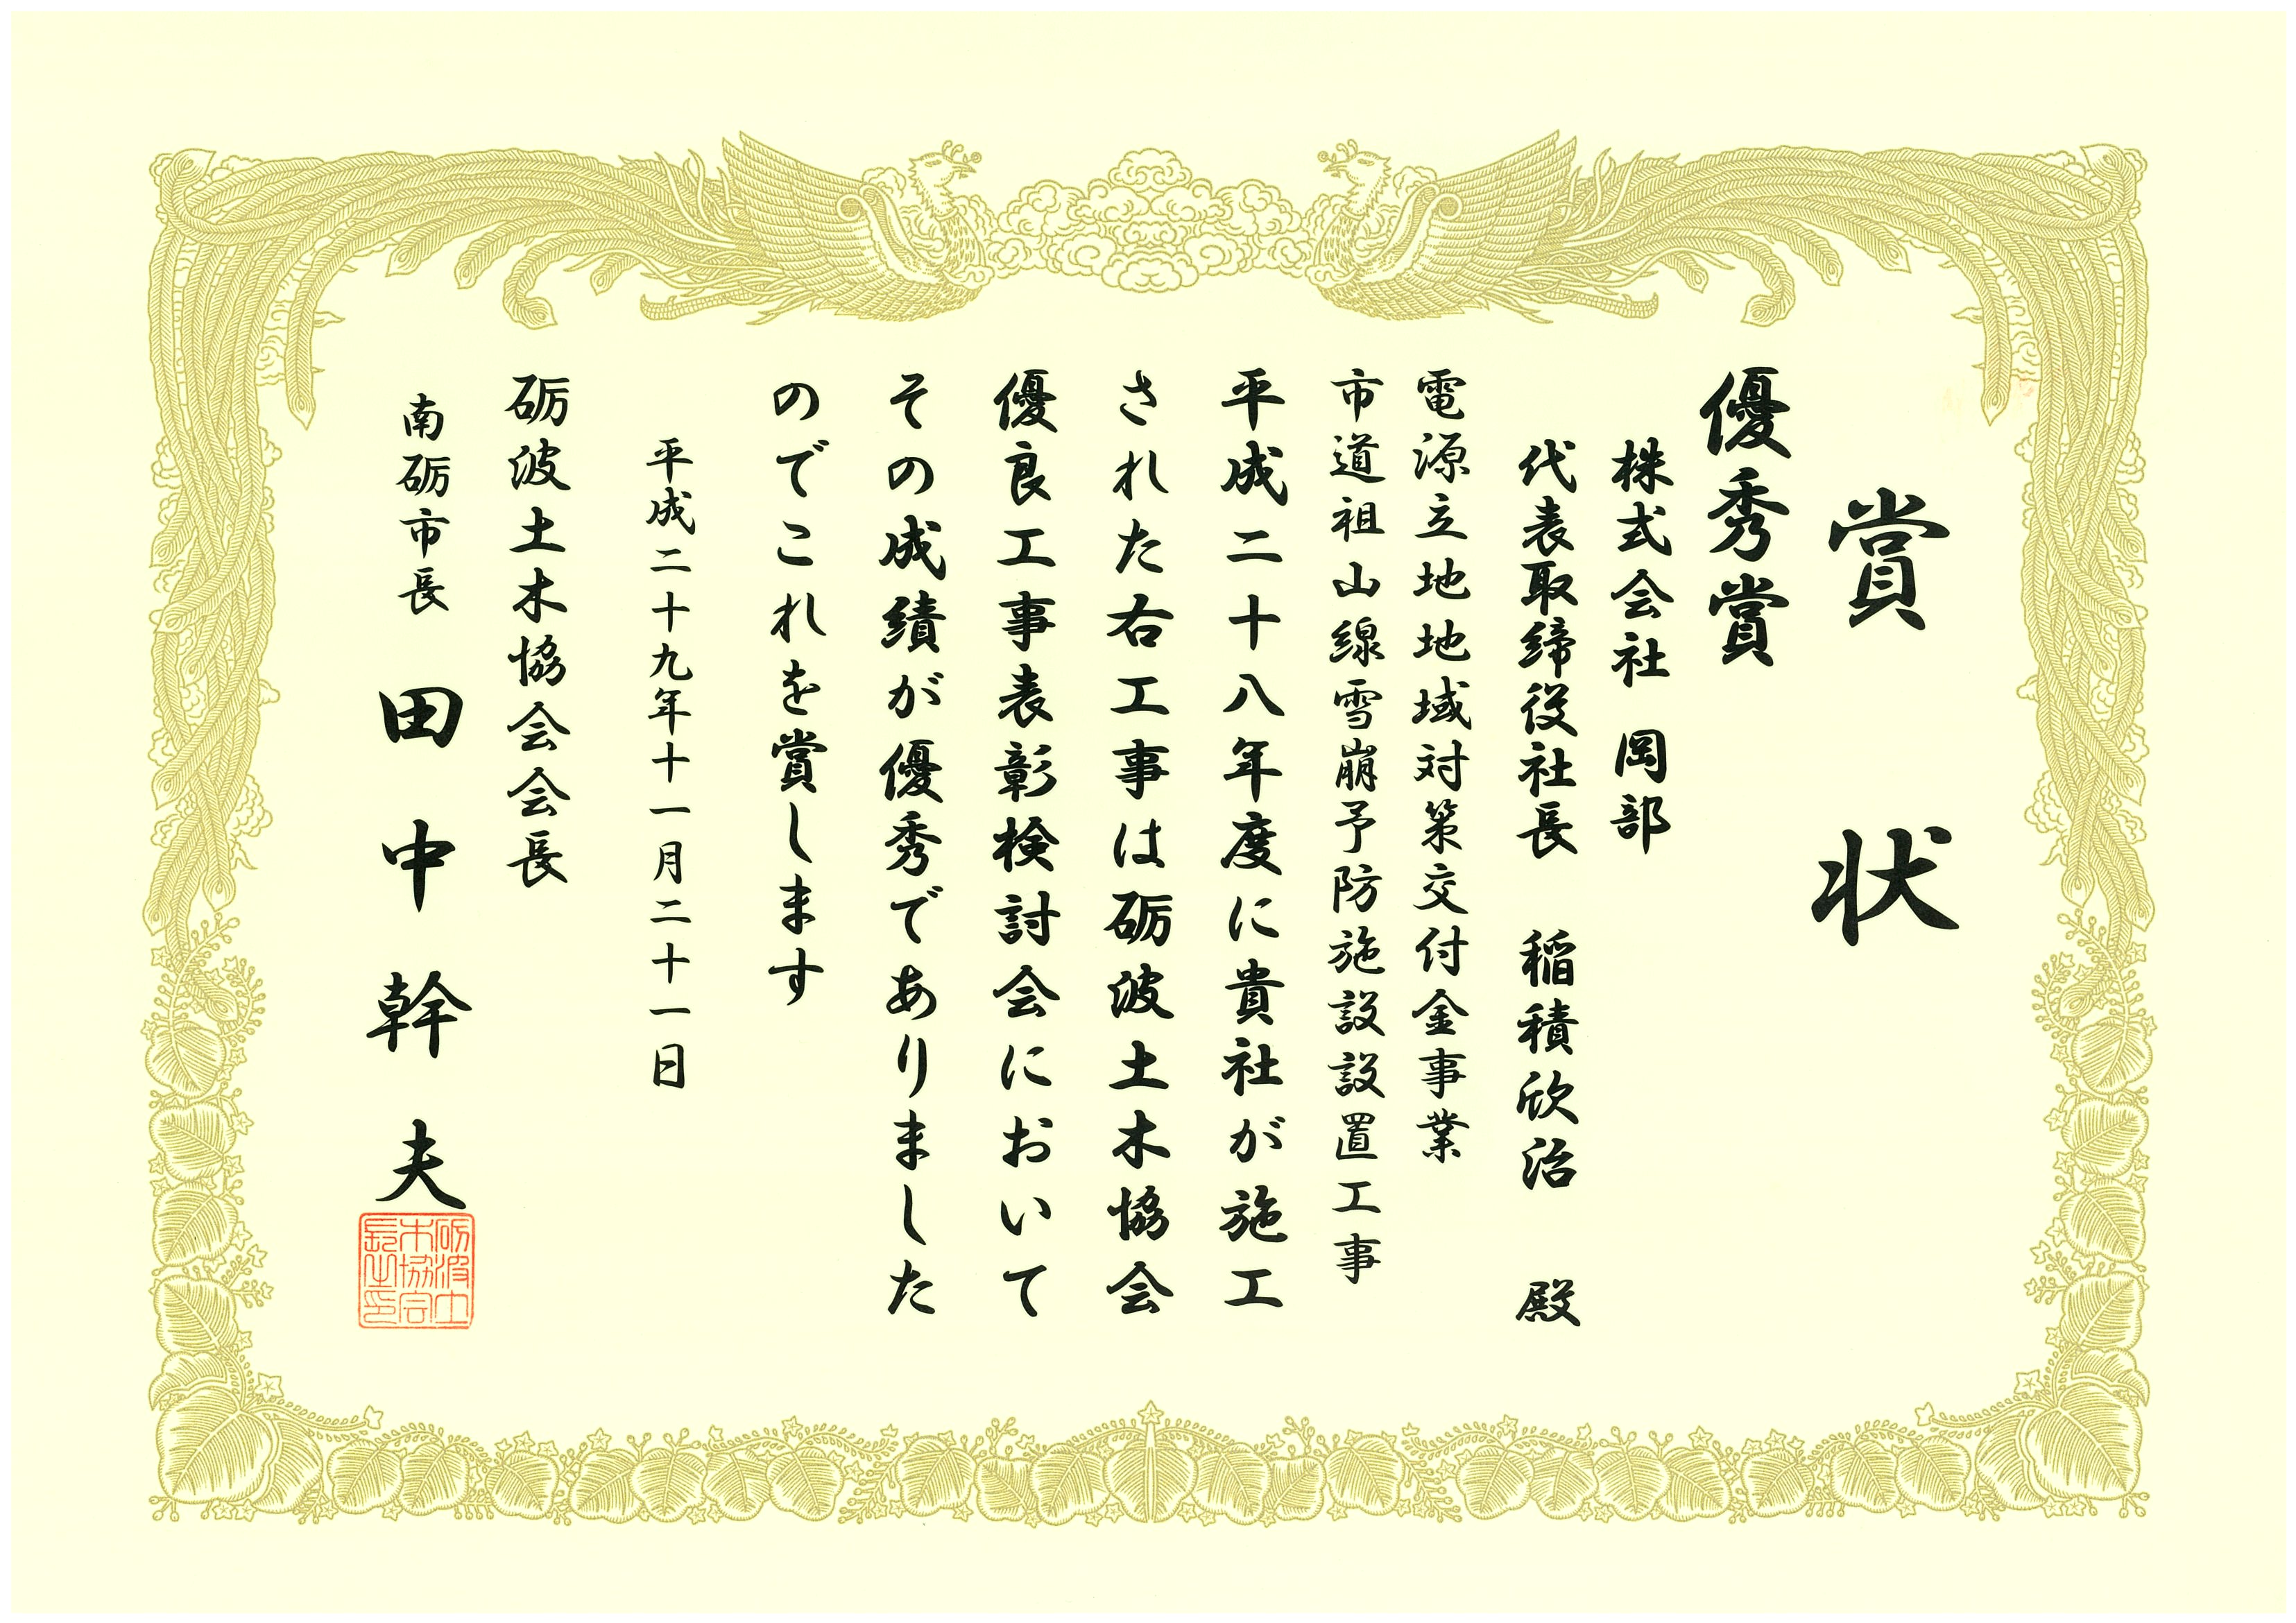 賞状
優秀賞
株式会社 岡部
代表取締役社長 稲積欣治 殿
電源立地地域対策交付金事業
市道祖山線雪崩予防施設設置工事
平成二十八年度に貴社が施工
された右工事は砺波土木協会
優良工事表彰検討会において
その成績が優秀でありました
のでこれを賞します
平成二十九年十一月二十一日
砺波土木協会会長
南砺市長 田中幹夫
砺波土
木協会
長之印